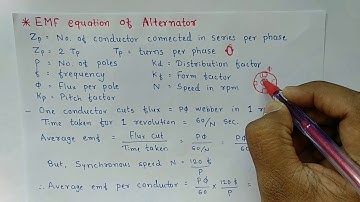 * EMF equation of Alternator
Zp = No. of conductor connected in series per phase
Zp = 2 Tp Tp = turns per phase
P = No. of poles Kd = Distribution factor
f = frequency Kf = Form factor
Φ = Flux per pole N = Speed in rpm
Kp = Pitch factor
- One conductor cuts flux = PΦ webber in 1 r
Time taken for 1 revolution = 60/N sec.
Average emf = Flux cut / Time taken = PΦ / 60/N = PΦ / 60
But, Synchronous speed N = 120 f / P
∴ Average emf per conductor = PΦ / 60 × 120 f / P =